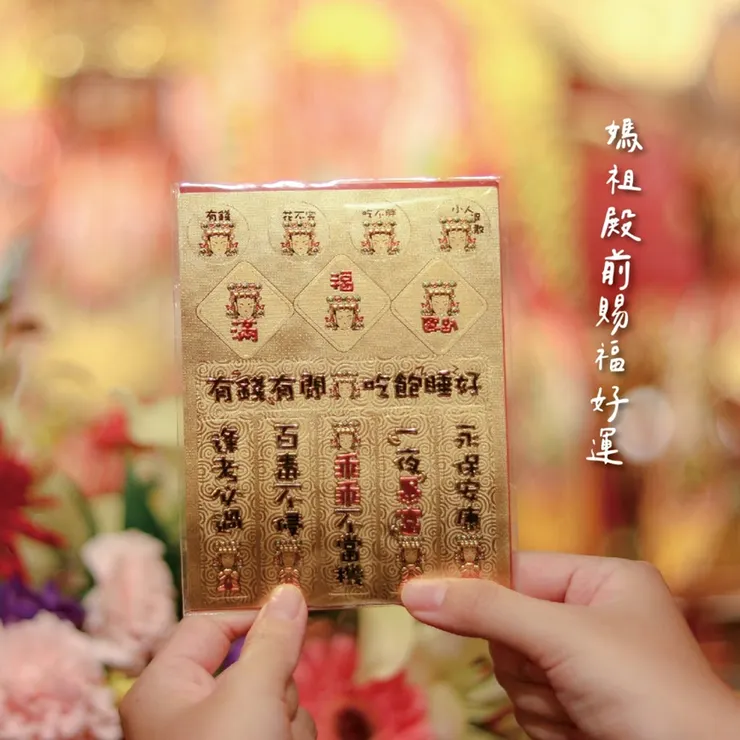 媽祖殿前賜福好運
有錢
花不完
吃不胖
小人
滿
福
有錢有閒 吃飽睡好
逢考必過
百毒不侵
乖乖不當機
一夜暴富
永保安康